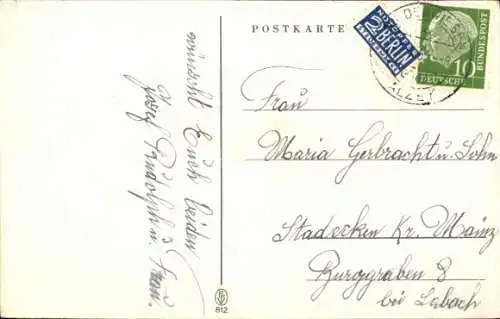 POSTKARTE
NOTOPFER
2 BERLIN
STEUERMARKE
ALZEY
10
DEUTSCHE
BUNDESPOST
wünscht Euch beiden
Josef Rudolph u. Frau.
Frau
Maria Gerbracht u. Sohn
Stadecken Kr. Mainz
Burggraben 8
bei Labach
812